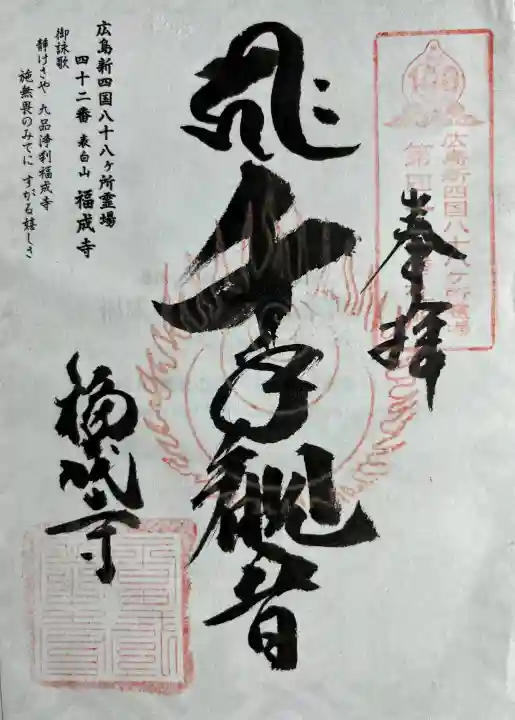 奉拝
広島新四国八十八ヶ所霊場
千手観音
福成寺
広島新四国八十八ヶ所霊場
四十二番 表白山 福成寺
御詠歌
静けさや 九品浄刹福成寺
施無畏のみてに すがる嬉しさ